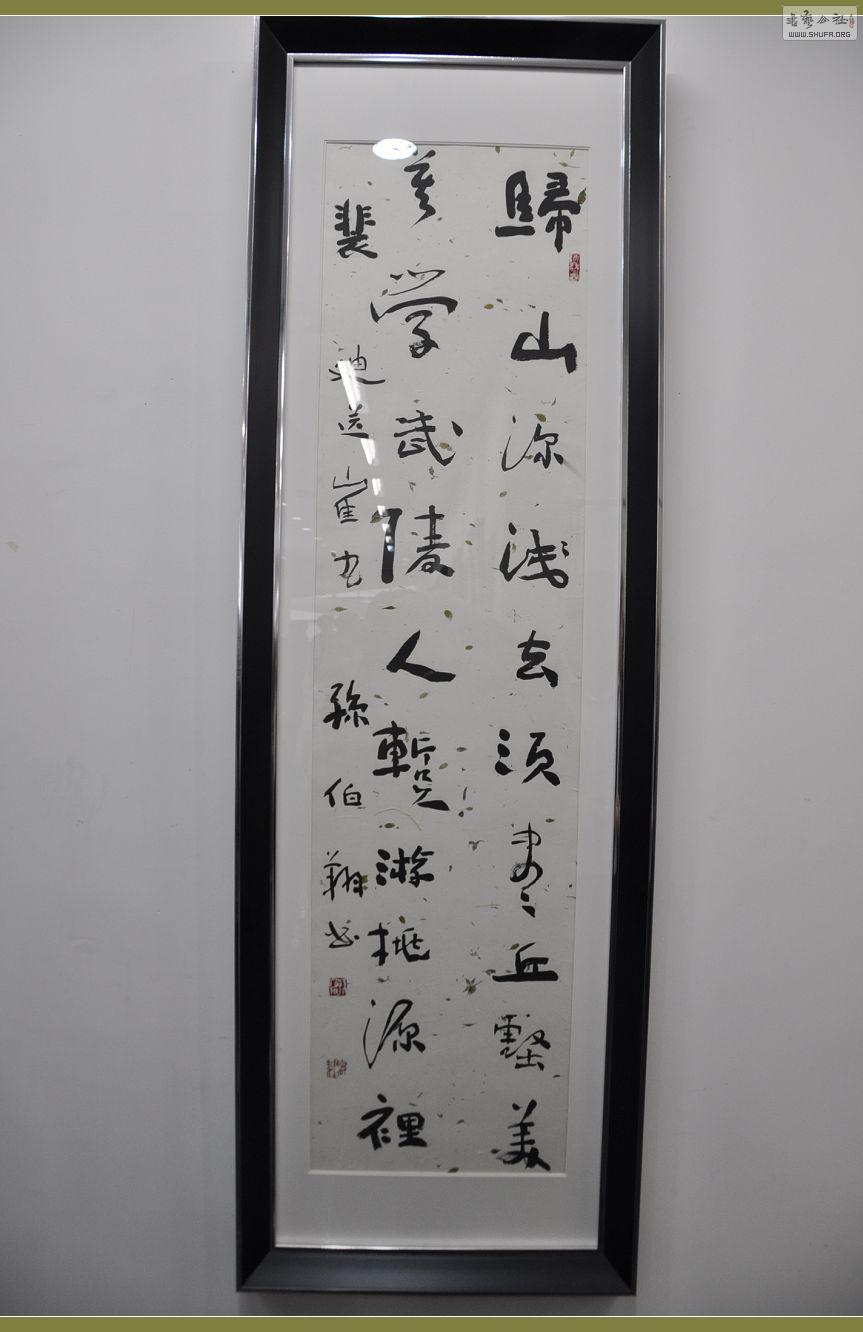 書艺公社
WWW.SHUFA.ORG
歸山深浅去须尽丘壑美
莫学武陵人暫游桃源裡
裴迪送崔九 孫伯翔书